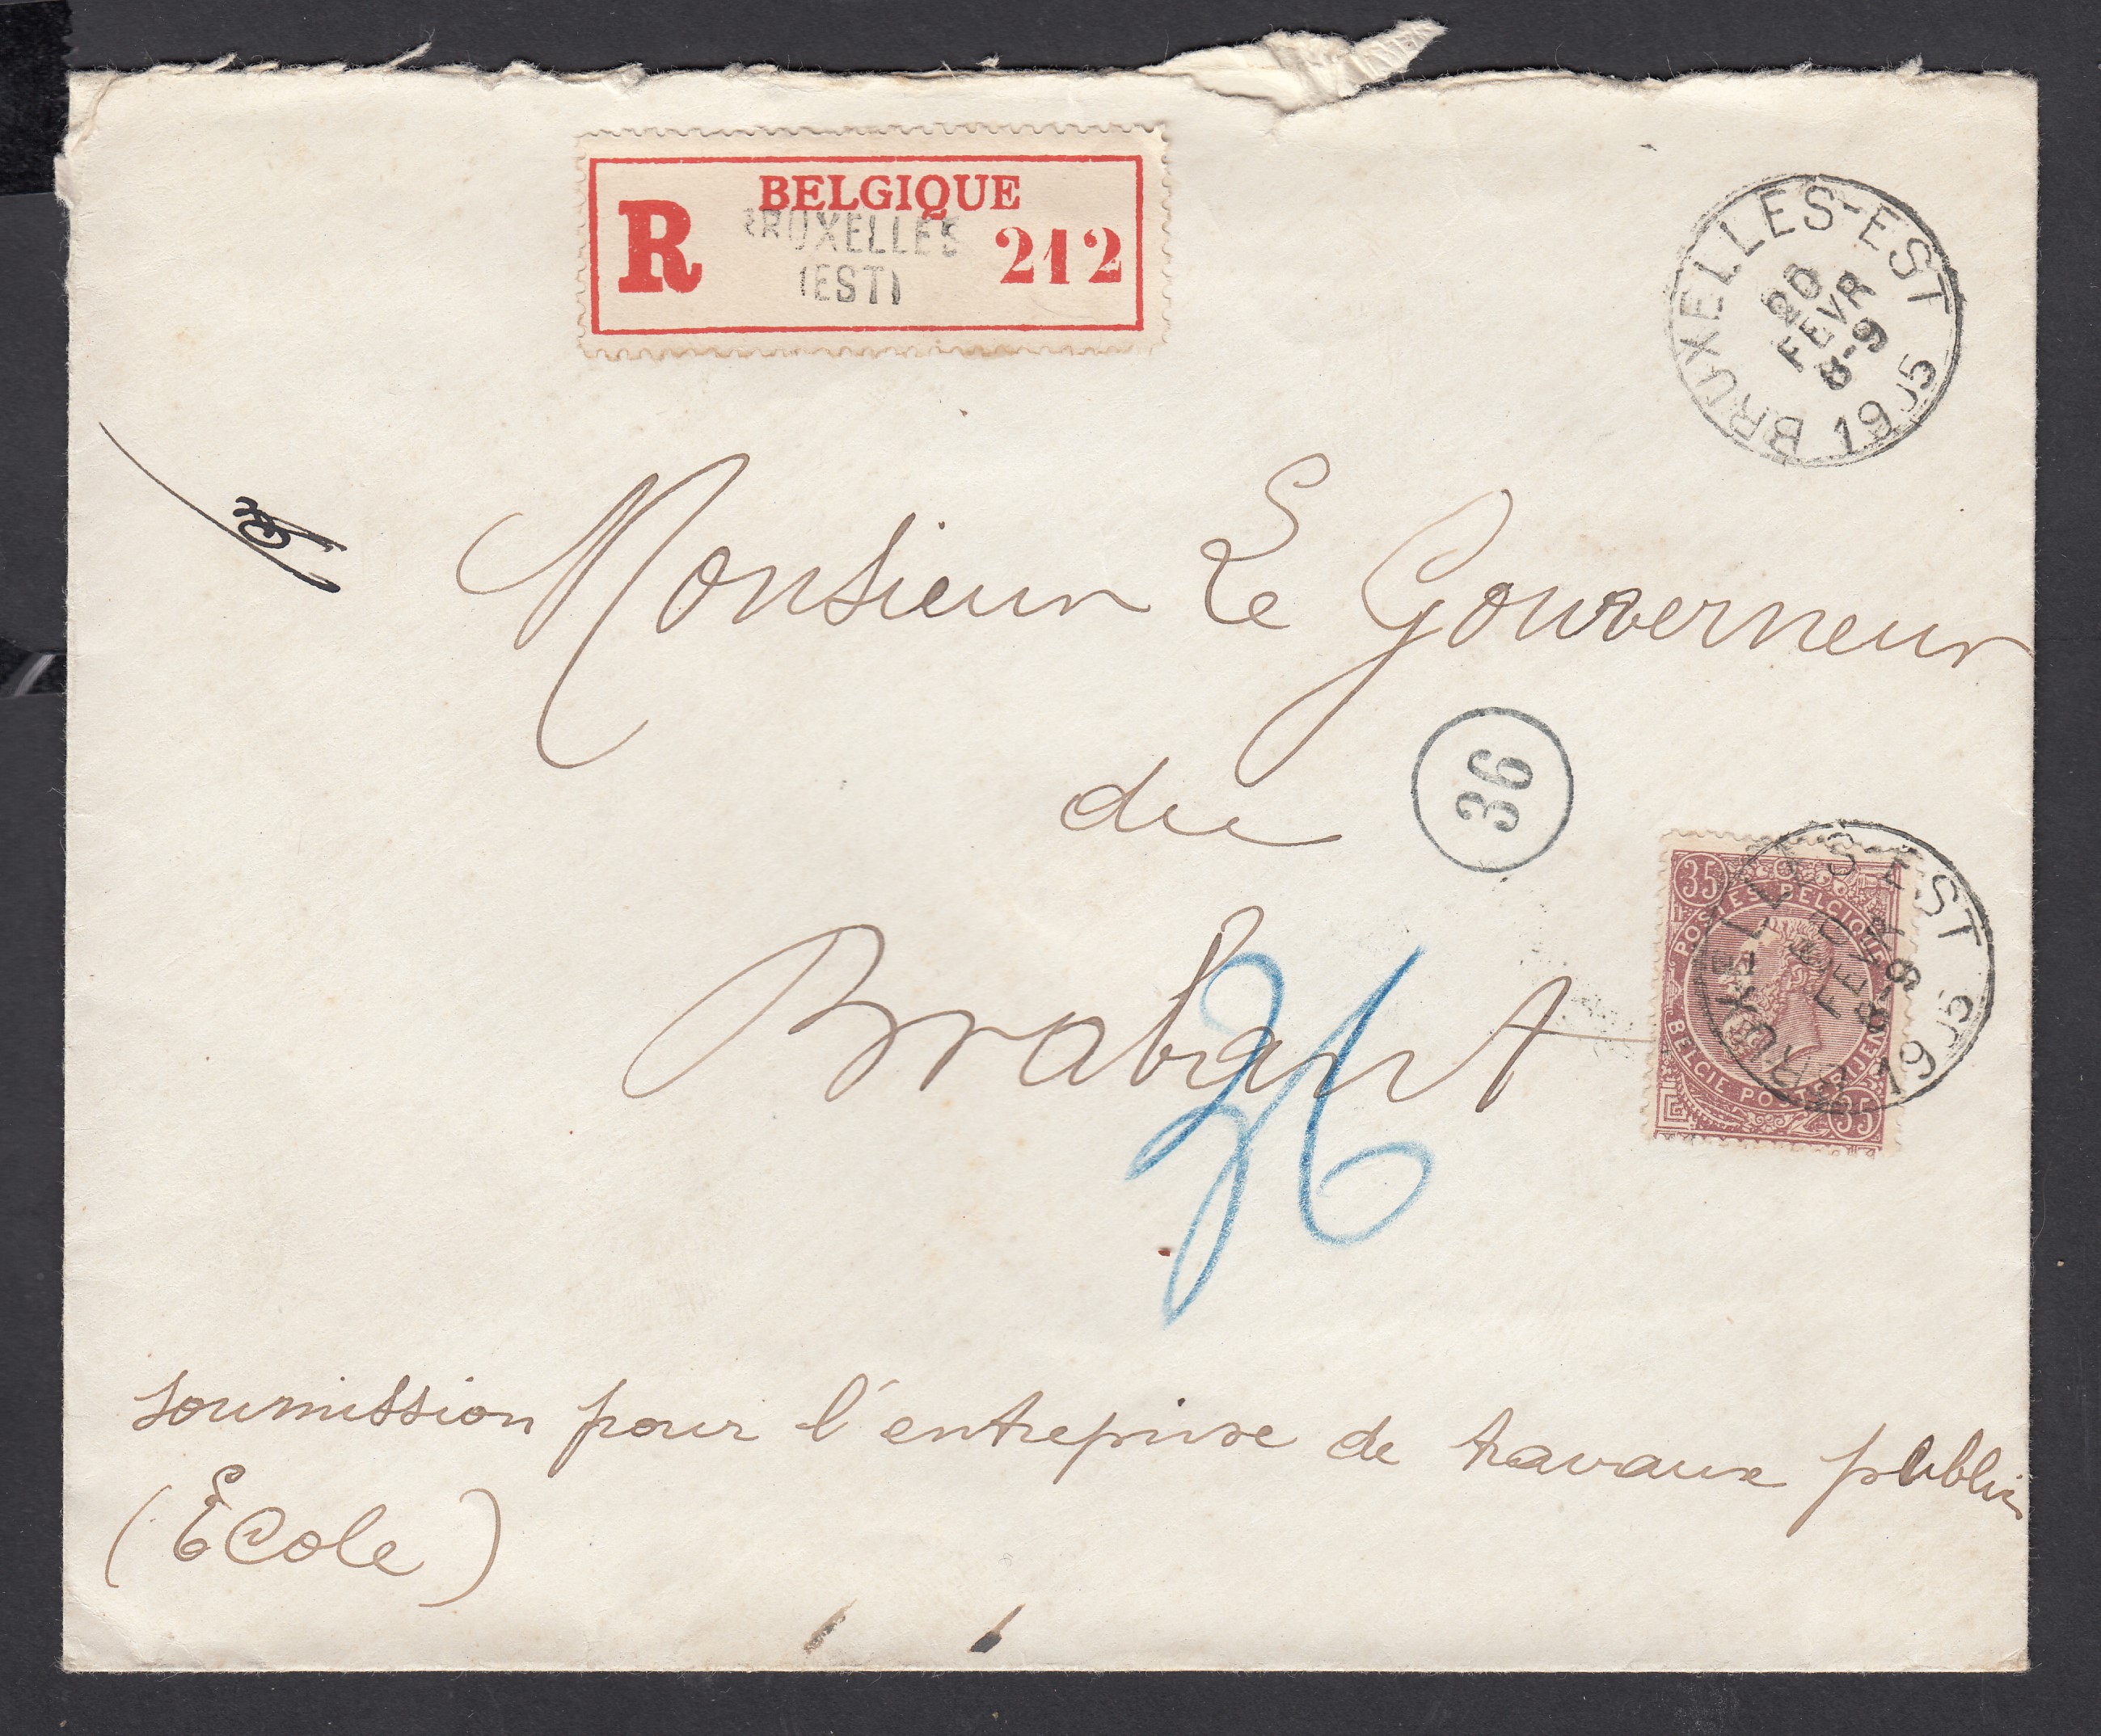 BELGIQUE
R
BRUXELLES
(EST)
212
BRUXELLES-EST
20
FEVR
8-9
1905
Monsieur Le Gouverneur
36
du
35
POSTES BELGIQUE
BELGIE POSTERIJEN
35
BRUXELLES-EST
20
FEVR
8-9
1905
Brabant
36
soumission pour l'entreprise de travaux publics
(École)